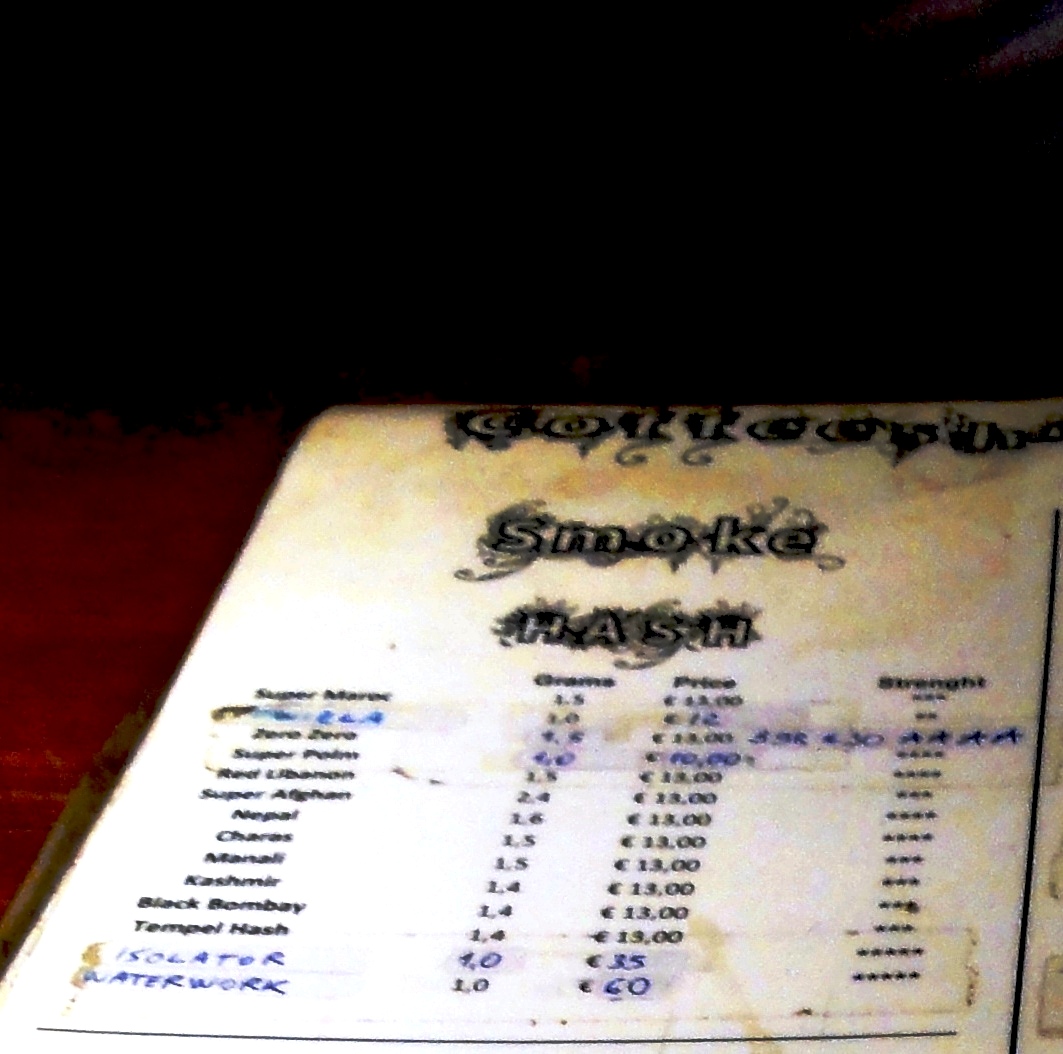 Coffeesh
Smoke
HASH
Grams Price Strenght
Super Maroc 1,5 € 13,00 ***
1,0 € 12 **
Zero Zero 1,5 € 13,00
Super Polm 1,0 € 10,00 ****
Red Libanon 1,5 € 13,00 ****
Super Afghan 2,4 € 13,00 ***
Nepal 1,6 € 13,00 ****
Charas 1,5 € 13,00 ****
Manali 1,5 € 13,00 ***
Kashmir 1,4 € 13,00 ***
Black Bombay 1,4 € 13,00 ***
Tempel Hash 1,4 € 13,00 ***
ISOLATOR 1,0 € 35 *****
WATERWORK 1,0 € 60 *****